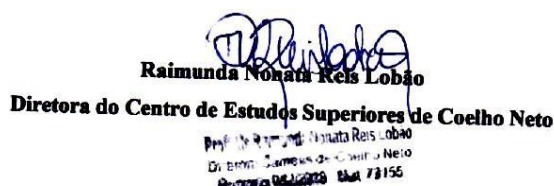 Raimunda Nonata Reis Lobão
Diretora do Centro de Estudos Superiores de Coelho Neto
Raimunda Nonata Reis Lobão
Campus de Coelho Neto
Mat 73155